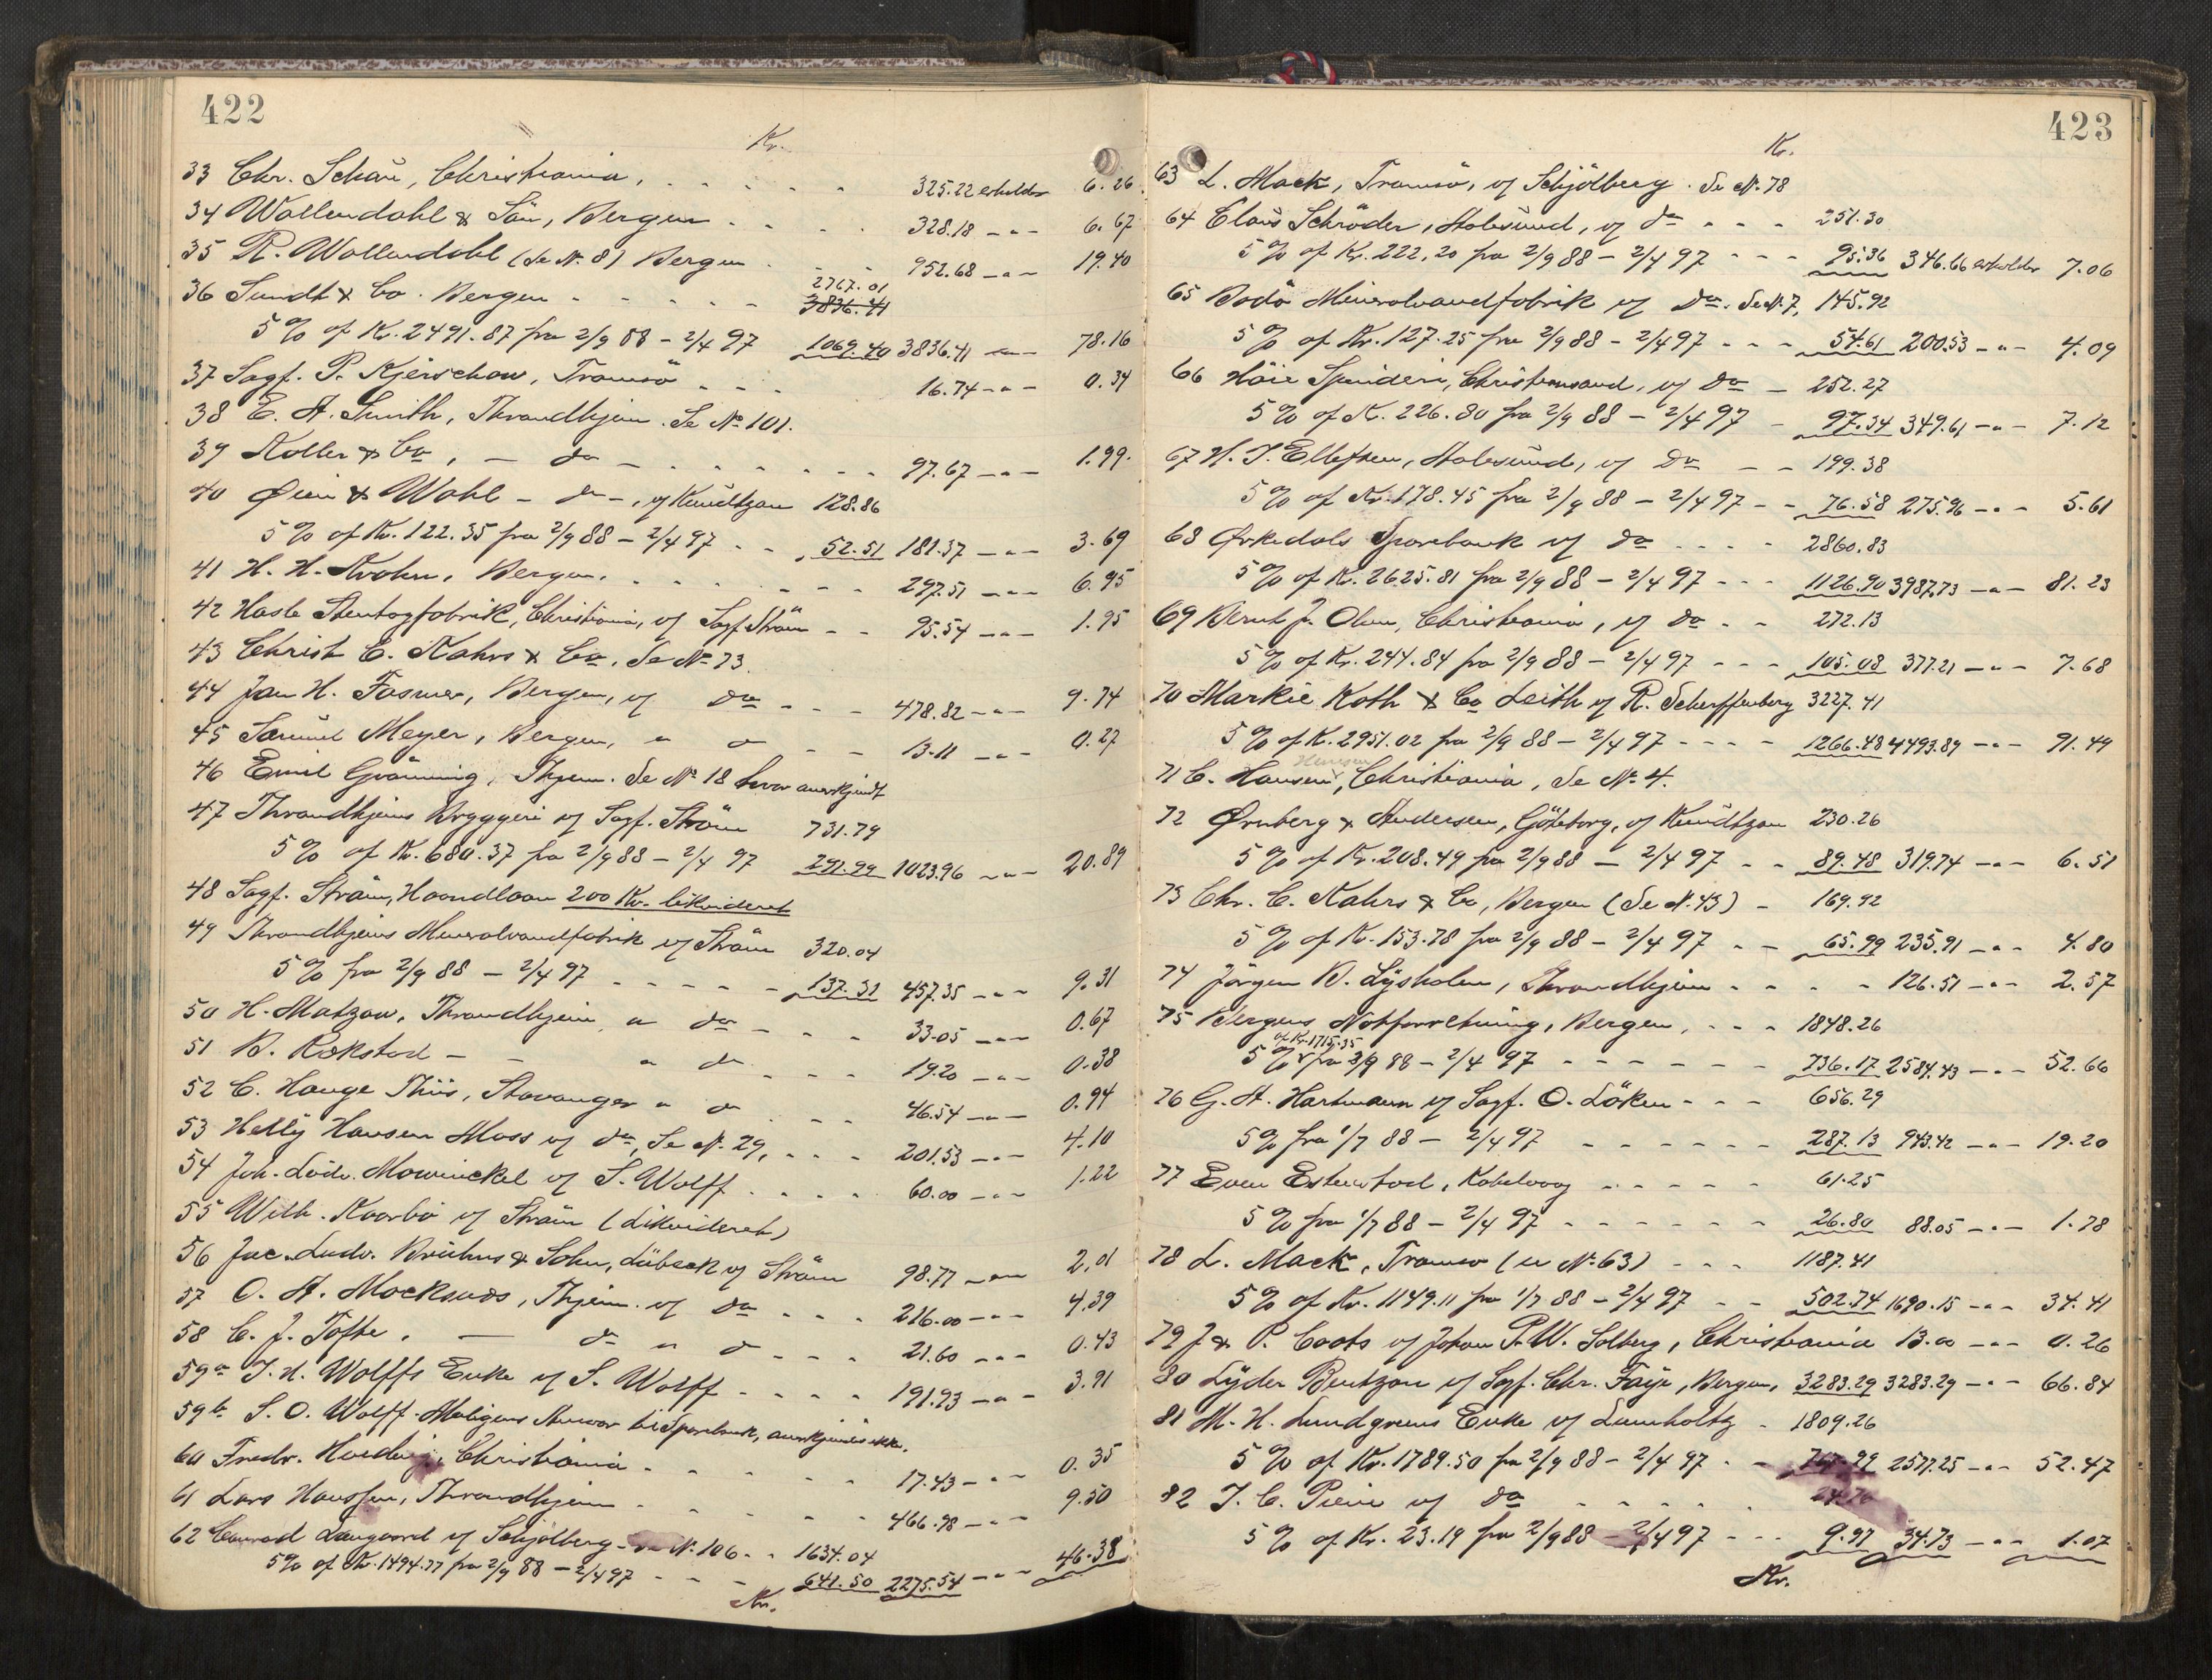 422
Kr.
33 Chr. Schou, Christiania, 325.22 erholder 6.26
34 Wallendahl & Sön, Bergen 328.18 - " - 6.67
35 R. Wallendahl (Se N. 8) Bergen 952.68 - " - 19.40
36 Sundt & Co. Bergen 2767.01
3836.41
5% of Kr. 2491.87 fra 2/9 88 - 2/4 97 1069.40 3836.41 - " - 78.16
37 Sagf. P. Kjerschow, Tromsö 16.74 - " - 0.34
38 E. A. Smith, Throndhjem. Se No 101.
39 Koller & Co, - do - 97.67 - " - 1.99
40 Øien & Wahl - do -, v/ Knudtzon 128.86
5% of Kr. 122.35 fra 2/9 88 - 2/4 97 52.51 181.37 - " - 3.69
41 H. H. Krohn, Bergen. 297.51 - " - 6.95
42 Hasle Stentøyfabrik, Christiania, v/ Sagf. Ström 95.54 - " - 1.95
43 Christ C. Kahrs & Co, Se No 73.
44 Jan H. Fasmer, Bergen, v/ do 478.82 - " - 9.74
45 Samuel Meyer, Bergen, " d 13.11 - " - 0.27
46 Emil Grönning, Thjem. Se No 18 hvor anerkjendt
47 Throndhjems Bryggeri v/ Sagf. Ström 731.79
5% of Kr. 680.37 fra 2/9 88 - 2/4 97 292.99 1023.96 - " - 20.89
48 Sagf. Ström, Haandlaan 200 Kr. likvideret
49 Throndhjems Mineralvandfabrik v/ Ström 320.04
5% fra 2/9 88 - 2/4 97 137.31 457.35 - " - 9.31
50 H. Matzow, Throndhjem, " do 33.05 - " - 0.67
51 B. Rækstad - " do 19.20 - " - 0.38
52 C. Hauge Thiis, Stavanger " do 46.54 - " - 0.94
53 Helly Hansen Moss v/ do, Se N. 29, 201.53 - " - 4.10
54 Joh. Ludv. Mowinckel v/ S. Wolff 60.00 - " - 1.22
55 Wilh. Kaarbö v/ Ström (Likvideret)
56 Jac. Ludv. Bruhns & Sohn, Lübeck v/ Ström 98.77 - " - 2.01
57 O. A. Thjem. v/ do 216.00 - " - 4.39
58 C. J. Tofte. - do " d 21.60 - " - 0.43
59a J. N. Wolffs Enke v/ S. Wolff 191.93 - " - 3.91
59b S. O. Wolff. Ansvar til Sparebank, anerkjendes ikke.
60 Fredr. Christiania 17.43 - " - 0.35
61 Lars Hansen, Throndhjem 466.98 - " - 9.50
62 Conrad Langaard v/ Schjölberg - Se N. 106 1634.04
5% of Kr. 1494.77 fra 2/9 88 - 2/4 97 641.50 2275.54 - " - 46.38
Kr.
423
Kr.
63 L. Mack, Tromsö, v/ Schjölberg. Se No 78
64 Claus Schröder, Aalesund, v/ do 251.30
5% of Kr. 222.20 fra 2/9 88 - 2/4 97 95.36 346.66 erholder 7.06
65 Bodö Mineralvandfabrik v/ Do. Se N. 7, 145.92
5% of Kr. 127.25 fra 2/9 88 - 2/4 97 54.61 200.53 - " - 4.09
66 Höie Spinderi, Christiansand, v/ Do 252.27
5% of Kr. 226.80 fra 2/9 88 - 2/4 97 97.34 349.61 - " - 7.12
67 H. J. Ellefsen, Aalesund, v/ Do 199.38
5% of Kr. 178.45 fra 2/9 88 - 2/4 97 76.58 275.96 - " - 5.61
68 Ørkedals Sparebank v/ do 2860.83
5% of Kr. 2625.81 fra 2/9 88 - 2/4 97 1126.90 3987.73 - " - 81.23
69 Bernt J. Olsen, Christiania, v/ do 272.13
5% of Kr. 244.84 fra 2/9 88 - 2/4 97 105.08 377.21 - " - 7.68
70 Markie Koth & Co Leith v/ R. Scherffenberg 3227.41
5% of K. 2951.02 fra 2/9 88 - 2/4 97 1266.48 4493.89 - " - 91.49
71 C. Hansen, Christiania, Se No 4.
72 Ørnberg & Andersen, Göteborg, v/ Knudtzon 230.26
5% of Kr. 208.49 fra 2/9 88 - 2/4 97 89.48 319.74 - " - 6.51
73 Chr. C. Kahrs & Co, Bergen (Se N. 43) 169.92
5% of Kr. 153.78 fra 2/9 88 - 2/4 97 65.99 235.91 - " - 4.80
74 Jörgen B. Lysholm, Throndhjem 126.51 - " - 2.57
75 Bergens Notforretning, Bergen, 1848.26
of Kr. 1715.35
5% fra 3/9 88 - 2/4 97 736.17 2584.43 - " - 52.66
76 G. A. Hartmann v/ Sagf. O. Löken 656.29
5% fra 1/7 88 - 2/4 97 287.13 943.42 - " - 19.20
77 Even Estenstad, Kobelvaag 61.25
5% fra 1/7 88 - 2/4 97 26.80 88.05 - " - 1.78
78 L. Mack, Tromsö (se No 63) 1187.41
5% of Kr. 1149.11 fra 1/7 88 - 2/4 97 502.74 1690.15 - " - 34.41
79 J & P. Coats v/ Johan P. W. Solberg, Christiania 13.00 - " - 0.26
80 Lyder Bentzon v/ Sagf. Chr. Faye, Bergen, 3283.29 3283.29 - " - 66.84
81 M. H. Lundgreens Enke v/ Lumholtz 1809.26
5% of Kr. 1789.50 fra 2/9 88 - 2/4 97 2577.25 - " - 52.47
82 J. C. Piene v/ do 24.76
5% of Kr. 23.19 fra 2/9 88 - 2/4 97 9.97 34.73 - " - 1.07
Kr.